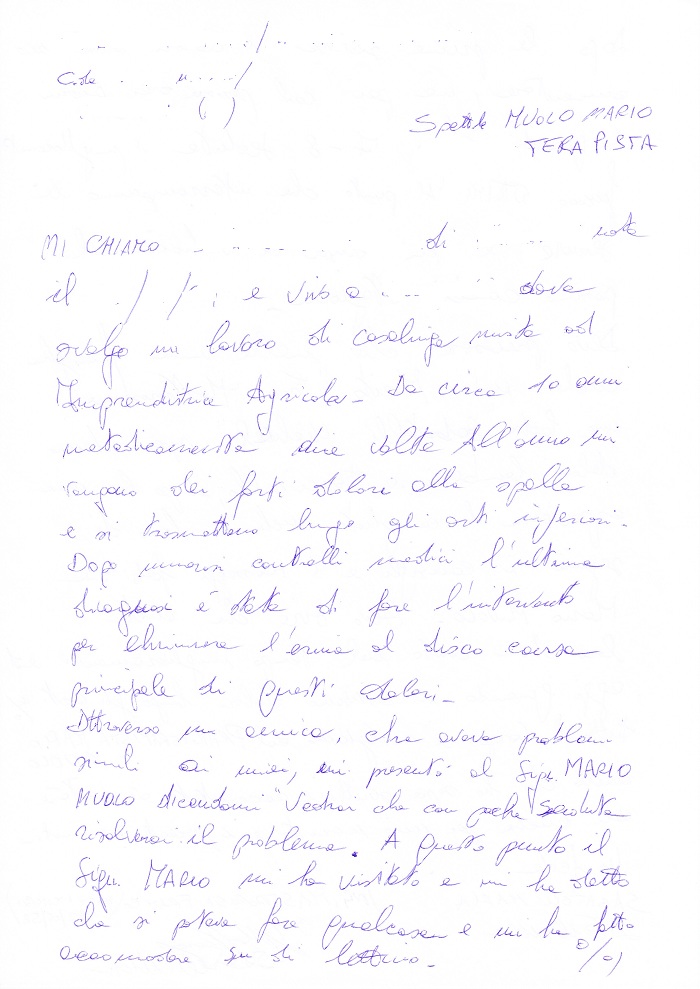 C.da
( )
Spett.le MUOLO MARIO
TERAPISTA
MI CHIAMO di nata
il / / ; e vivo a dove
svolgo un lavoro di casalinga mista ad
Imprenditrice Agricola - Da circa 10 anni
matematicamente due volte All'anno mi
vengono dei forti dolori alla spalla
e si trasmettono lungo gli arti inferiori.
Dopo numerosi controlli medici l'ultima
diagnosi è stata di fare l'intervento
per eliminare l'ernia al disco causa
principale di Questi dolori -
Attraverso un amica, che aveva problemi
simili ai miei, mi presentò al Sign. MARIO
MUOLO dicendomi "Vedrai che con poche sedute
risolverai il problema. A Questo punto il
Sign. MARIO mi ha visitato e mi ha detto
che si poteva fare qualcosa e mi ha fatto
accomodare su di lettino -